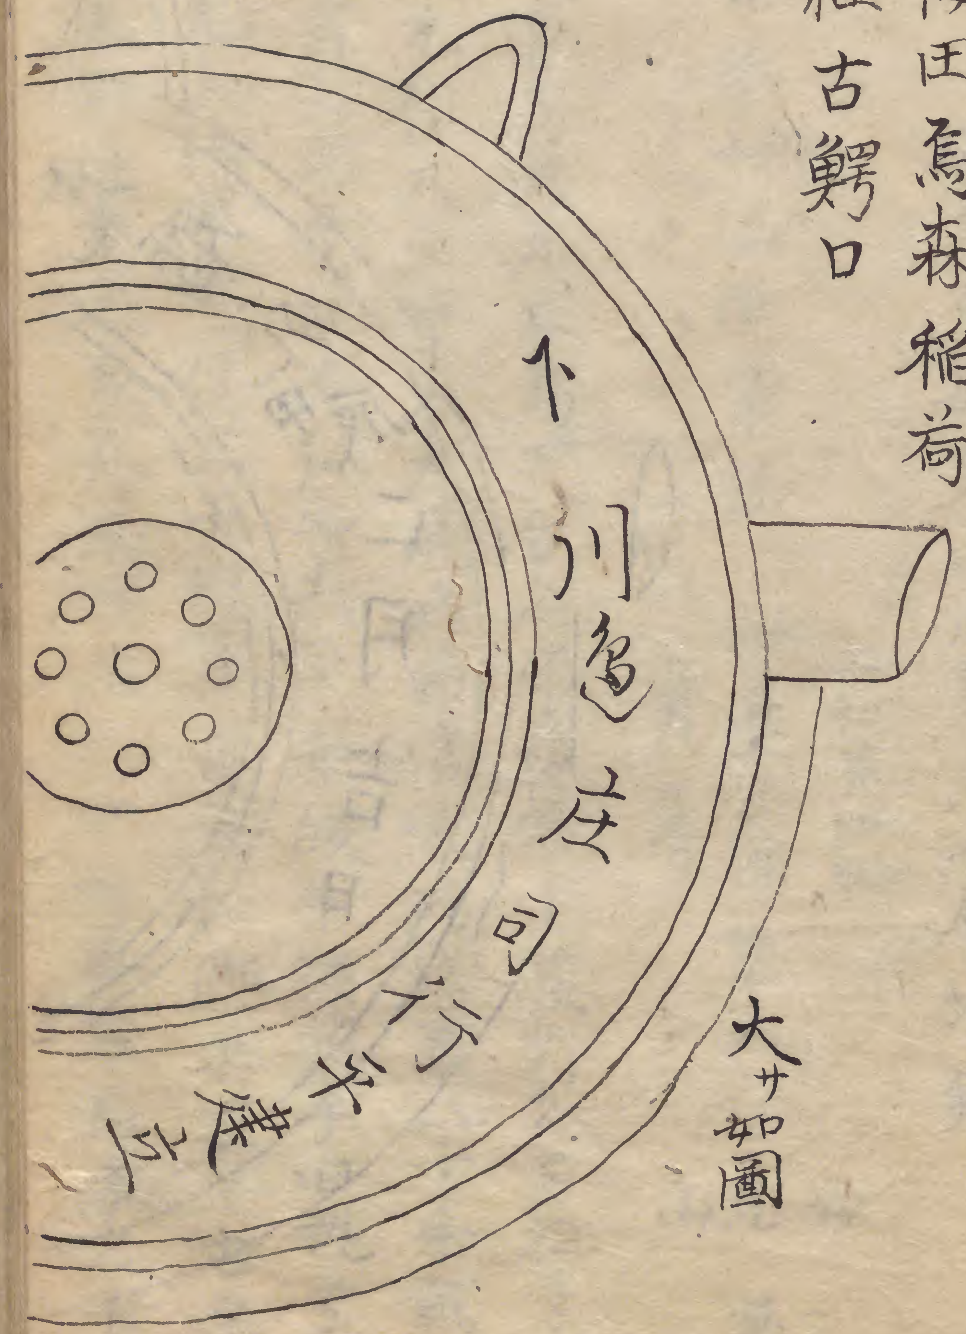 田烏森稲荷
古鰐口
下川邉庄司行平建立
大サ如圖